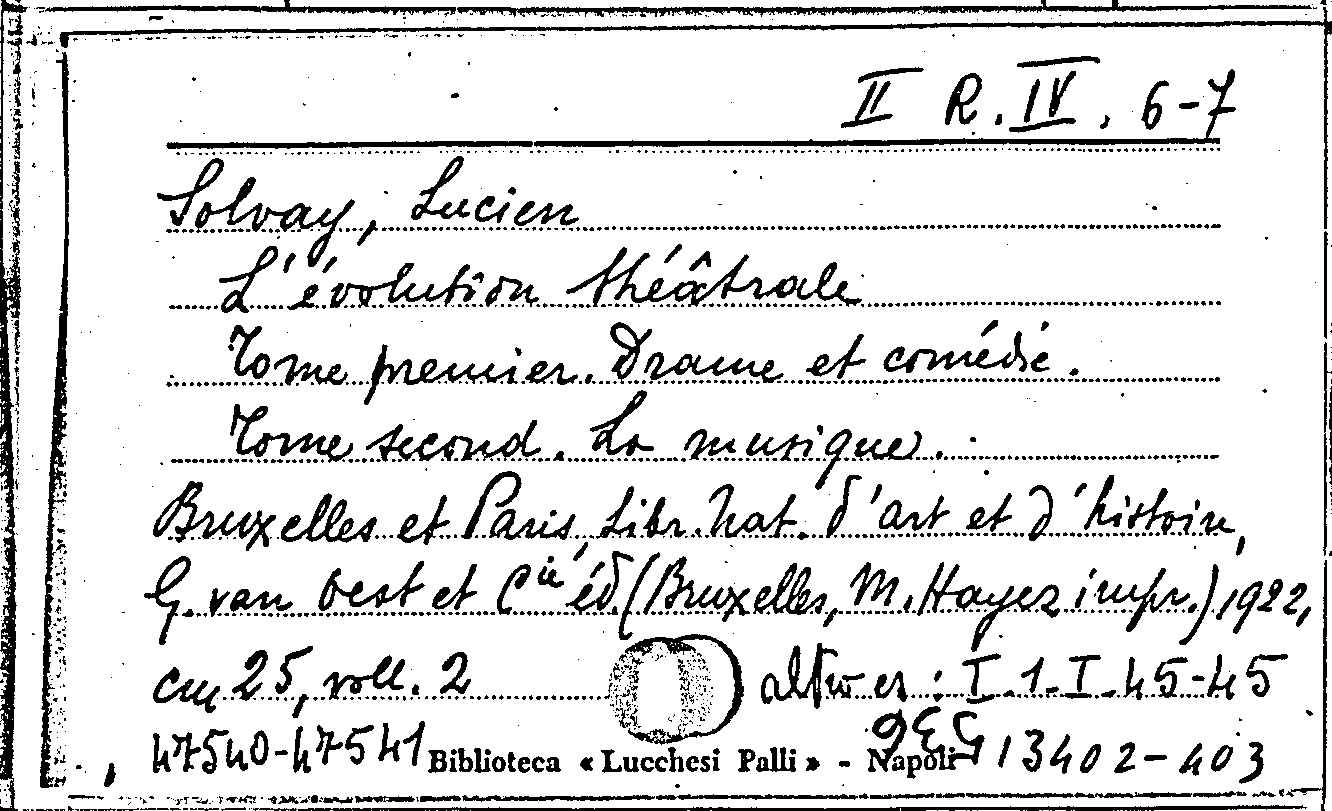 II R. IV. 6-7
Solvay, Lucien
L'évolution théâtrale
Tome premier. Drame et comédie.
Tome second. La musique.
Bruxelles et Paris, Libr. Nat. d'art et d'histoire,
G. van Oest et Cie éd. (Bruxelles, M. Hayez impr.) 1922,
cm 25, voll. 2 altro es: I.1.I.45-45
47540-47541 Biblioteca « Lucchesi Palli » - Napoli 13402-403